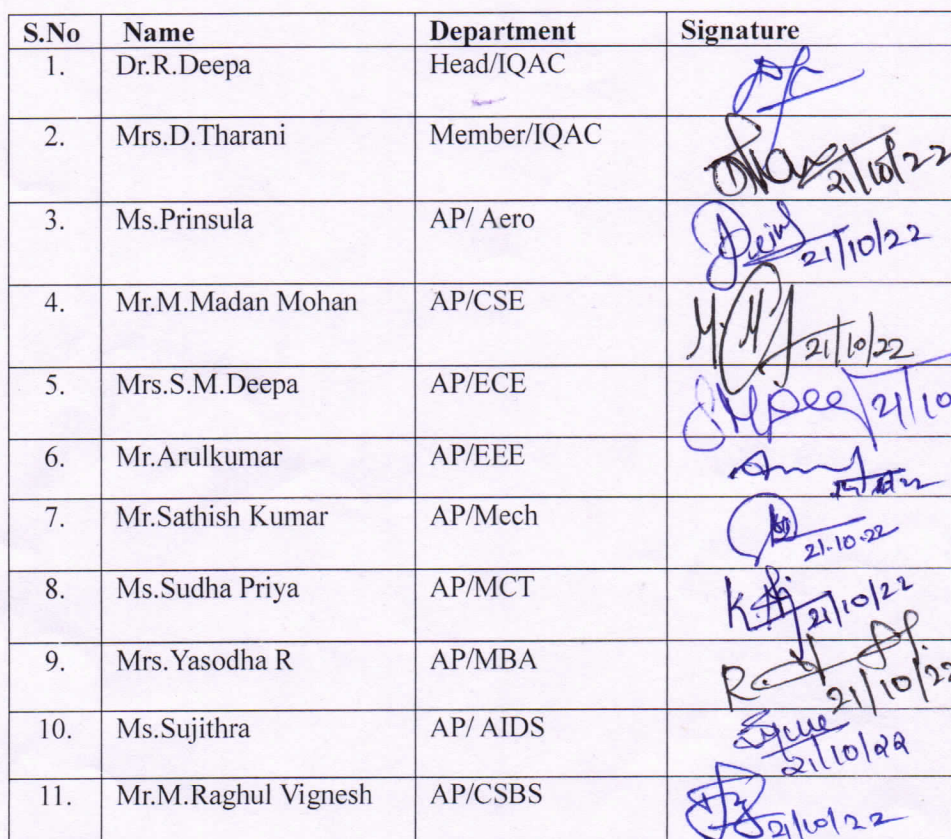 S.No Name Department Signature
1. Dr.R.Deepa Head/IQAC
2. Mrs.D.Tharani Member/IQAC 21/10/22
3. Ms.Prinsula AP/ Aero 21/10/22
4. Mr.M.Madan Mohan AP/CSE 21/10/22
5. Mrs.S.M.Deepa AP/ECE 21/10
6. Mr.Arulkumar AP/EEE
7. Mr.Sathish Kumar AP/Mech 21-10-22
8. Ms.Sudha Priya AP/MCT 21/10/22
9. Mrs.Yasodha R AP/MBA 21/10/22
10. Ms.Sujithra AP/ AIDS 21/10/22
11. Mr.M.Raghul Vignesh AP/CSBS 21/10/22